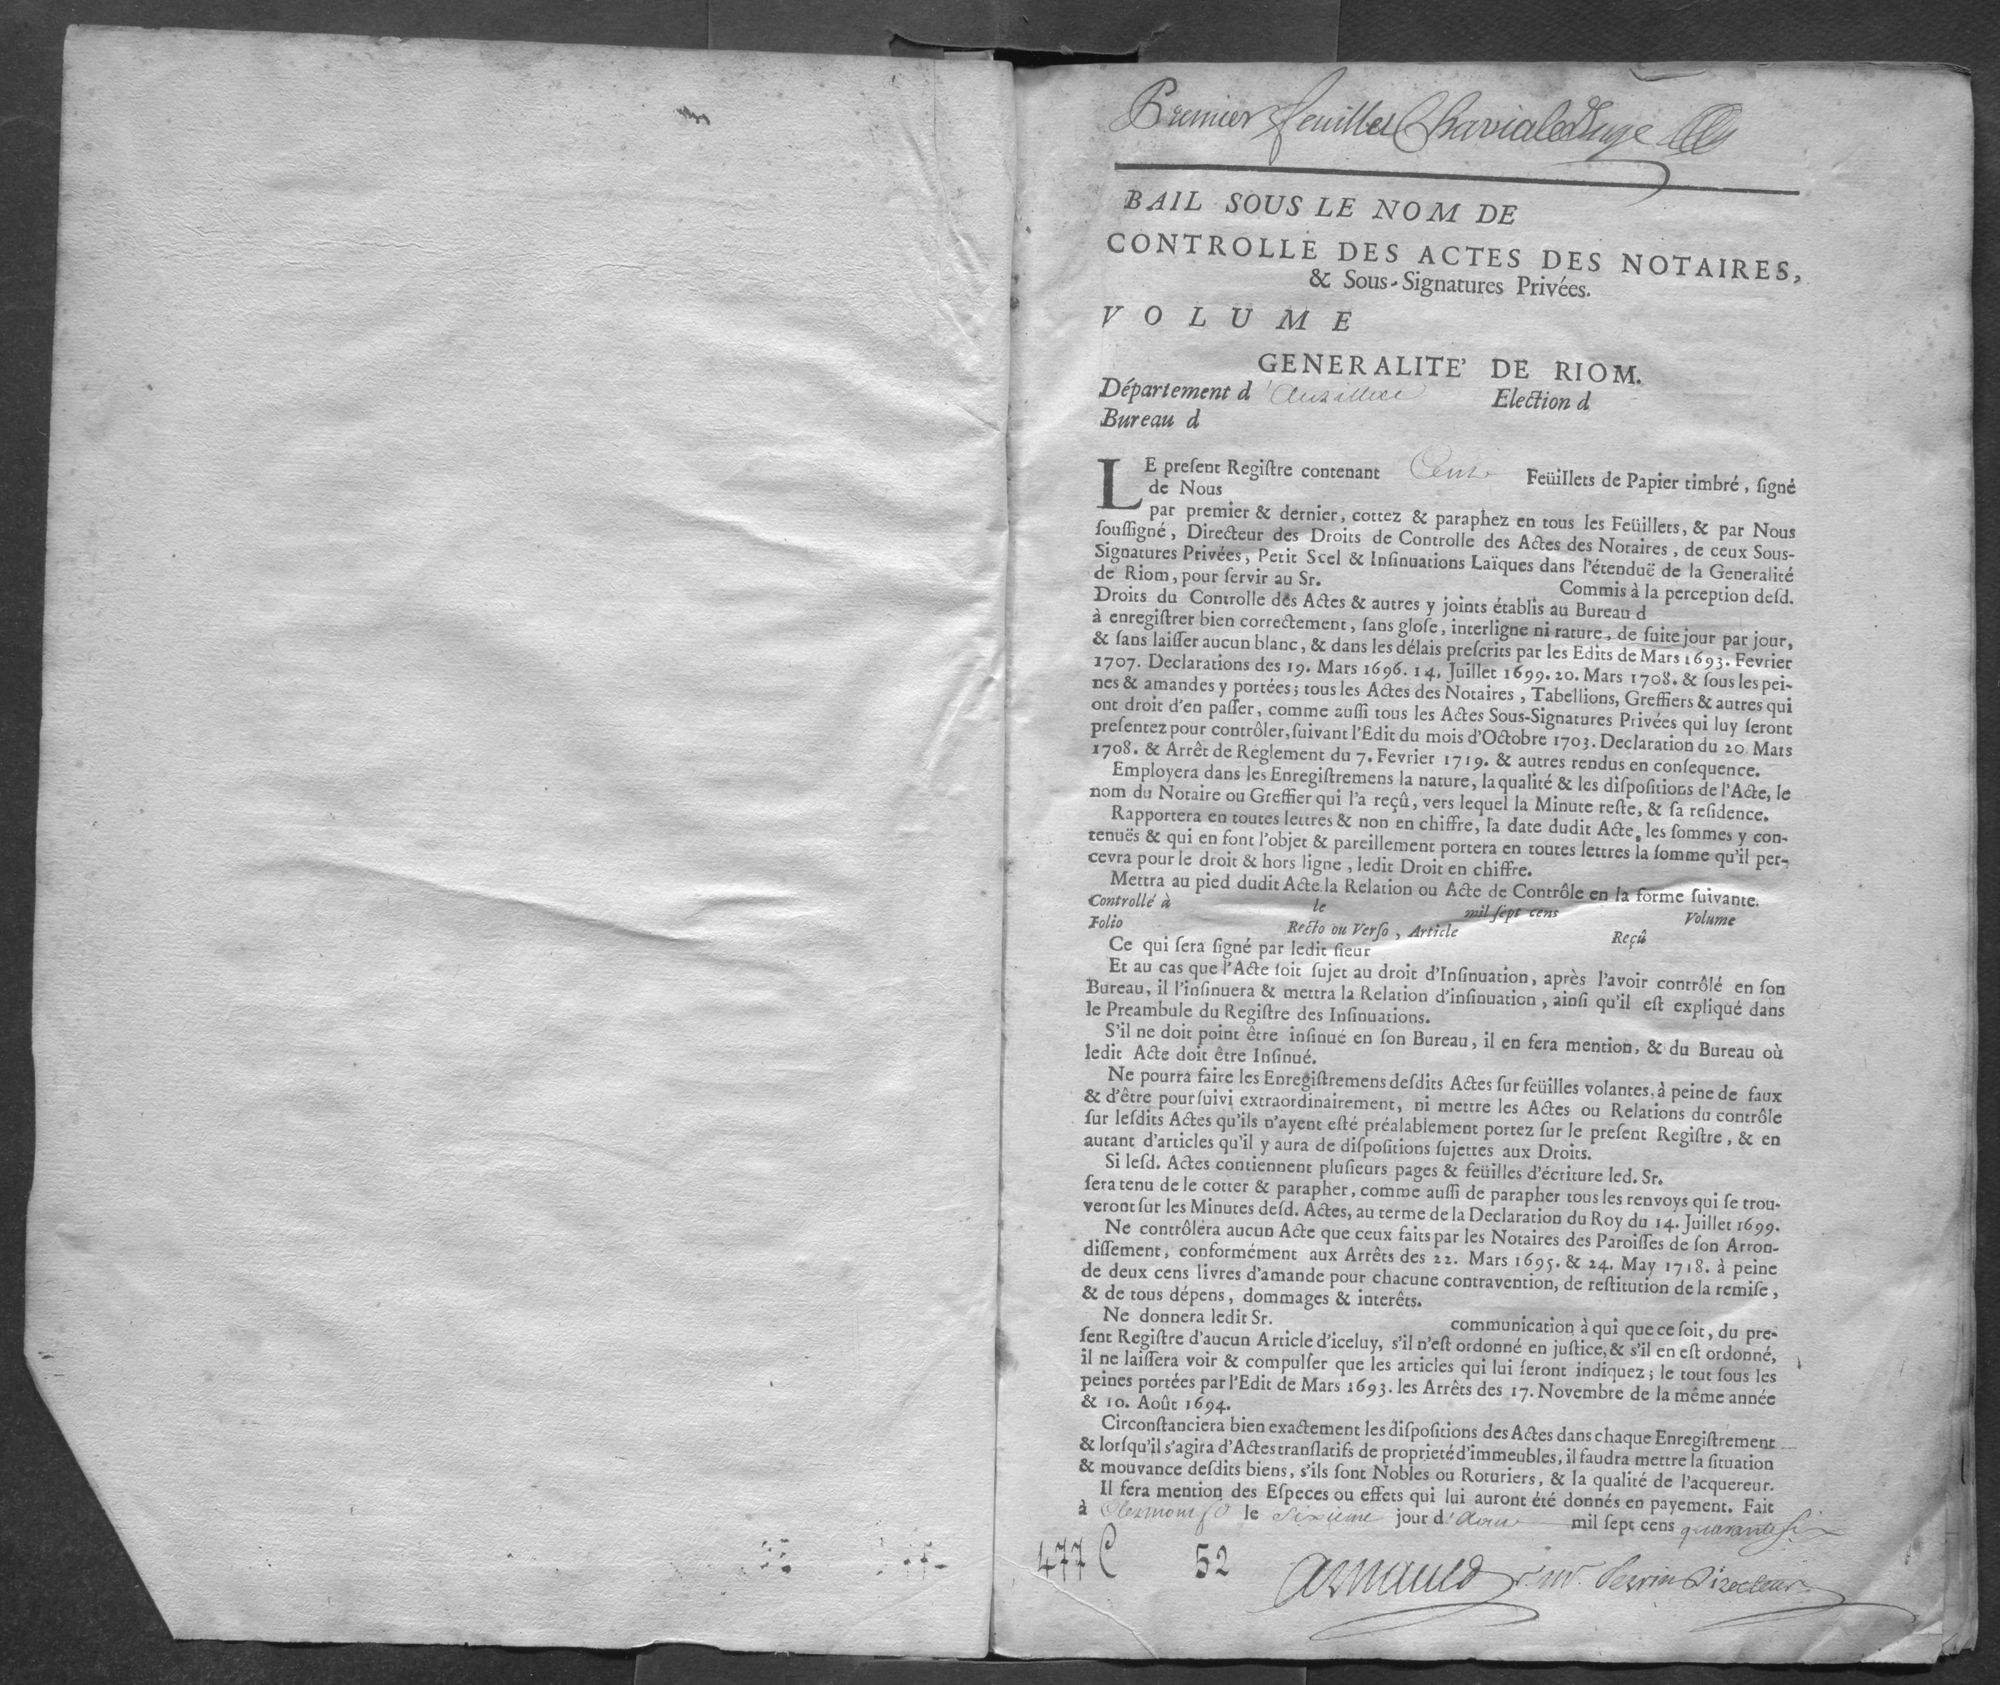 Premier feuillet Chaviale Juge
BAIL SOUS LE NOM DE
CONTROLLE DES ACTES DES NOTAIRES,
& Sous-Signatures Privées.
VOLUME
GENERALITE' DE RIOM.
Département d 'Auzillere Election d
Bureau d
LE preſent Regiſtre contenant Cent Feüillets de Papier timbré, ſigné
de Nous
par premier & dernier, cottez & paraphez en tous les Feüillets, & par Nous
ſouſſigné, Directeur des Droits de Controlle des Actes des Notaires, de ceux Sous-
Signatures Privées, Petit Scel & Inſinuations Laïques dans l'étenduë de la Generalité
de Riom, pour ſervir au Sr. Commis à la perception deſd.
Droits du Controlle des Actes & autres y joints établis au Bureau d
à enregiſtrer bien correctement, ſans gloſe, interligne ni rature, de ſuite jour par jour,
& ſans laiſſer aucun blanc, & dans les délais preſcrits par les Edits de Mars 1693. Fevrier
1707. Declarations des 19. Mars 1696. 14. Juillet 1699. 20. Mars 1708. & ſous les pei-
nes & amandes y portées; tous les Actes des Notaires, Tabellions, Greffiers & autres qui
ont droit d'en paſſer, comme auſſi tous les Actes Sous-Signatures Privées qui luy ſeront
preſentez pour contrôler, ſuivant l'Edit du mois d'Octobre 1703. Declaration du 20 Mars
1708. & Arrêt de Reglement du 7. Fevrier 1719. & autres rendus en conſequence.
Employera dans les Enregiſtremens la nature, la qualité & les diſpoſitions de l'Acte, le
nom du Notaire ou Greffier qui l'a reçû, vers lequel la Minute reſte, & ſa reſidence.
Rapportera en toutes lettres & non en chiffre, la date dudit Acte, les ſommes y con-
tenuës & qui en font l'objet & pareillement portera en toutes lettres la ſomme qu'il per-
cevra pour le droit & hors ligne, ledit Droit en chiffre.
Mettra au pied dudit Acte la Relation ou Acte de Contrôle en la forme ſuivante.
Controllé à le mil ſept cens Volume
Folio Recto ou Verſo, Article Reçû
Ce qui ſera ſigné par ledit ſieur
Et au cas que l'Acte ſoit ſujet au droit d'Inſinuation, après l'avoir contrôlé en ſon
Bureau, il l'inſinuera & mettra la Relation d'inſinuation, ainſi qu'il eſt expliqué dans
le Preambule du Regiſtre des Inſinuations.
S'il ne doit point être inſinué en ſon Bureau, il en fera mention, & du Bureau où
ledit Acte doit être Inſinué.
Ne pourra faire les Enregiſtremens deſdits Actes ſur feüilles volantes, à peine de faux
& d'être pourſuivi extraordinairement, ni mettre les Actes ou Relations du contrôle
ſur leſdits Actes qu'ils n'ayent eſté préalablement portez ſur le preſent Regiſtre, & en
autant d'articles qu'il y aura de diſpoſitions ſujettes aux Droits.
Si leſd. Actes contiennent pluſieurs pages & feüilles d'écriture led. Sr.
ſera tenu de le cotter & parapher, comme auſſi de parapher tous les renvoys qui ſe trou-
veront ſur les Minutes deſd. Actes, au terme de la Declaration du Roy du 14. Juillet 1699.
Ne contrôlera aucun Acte que ceux faits par les Notaires des Paroiſſes de ſon Arron-
diſſement, conformément aux Arrêts des 22. Mars 1695. & 24. May 1718. à peine
de deux cens livres d'amande pour chacune contravention, de reſtitution de la remiſe,
& de tous dépens, dommages & interêts.
Ne donnera ledit Sr. communication à qui que ce ſoit, du pre-
ſent Regiſtre d'aucun Article d'iceluy, s'il n'eſt ordonné en juſtice, & s'il en eſt ordonné,
il ne laiſſera voir & compulſer que les articles qui lui ſeront indiquez; le tout ſous les
peines portées par l'Edit de Mars 1693. les Arrêts des 17. Novembre de la même année
& 10. Août 1694.
Circonſtanciera bien exactement les diſpoſitions des Actes dans chaque Enregiſtrement
& lorſqu'il s'agira d'Actes tranſlatifs de proprieté d'immeubles, il faudra mettre la ſituation
& mouvance deſdits biens, s'ils ſont Nobles ou Roturiers, & la qualité de l'acquereur.
Il ſera mention des Eſpeces ou effets qui lui auront été donnés en payement. Fait
à Clermont fd le Sixieme jour d'Aout mil ſept cens quarante ſix
477 C 52 Arnauld Perrin Directeur